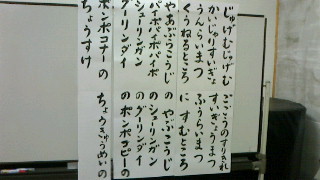 じゅげむじゅげむ ごこうのすりきれ
かいじゃりすいぎょの すいぎょうまつ
うんらいまつ ふうらいまつ
くうねるところ にすむところ
やあぶらこうじ やぶらこうじ
パイポパイポパイポ のシューリンガン
シューリンガン のグーリンダイ
グーリンダイ のポンポコピーの
ポンポコナーの ちょうきゅうめいの
ちょうすけ